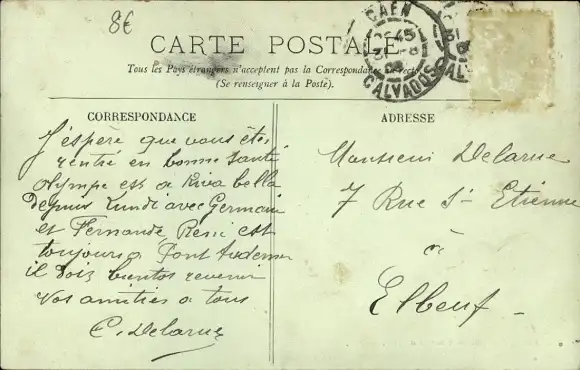 8€
CARTE POSTALE
Tous les Pays étrangers n'acceptent pas la Correspondance au recto
(Se renseigner à la Poste).
CAEN
CALVADOS
CORRESPONDANCE
J'éspère que vous êtes
rentré en bonne santé
olympe est a Riva bella
depuis Lundi avec Germain
et Fernande, est
toujours a Pont Audemer
il dois bientot revenir
Vos amitiés a tous
C. Delarue
ADRESSE
Monsieur Delarue
7 Rue St Etienne
à
Elbeuf